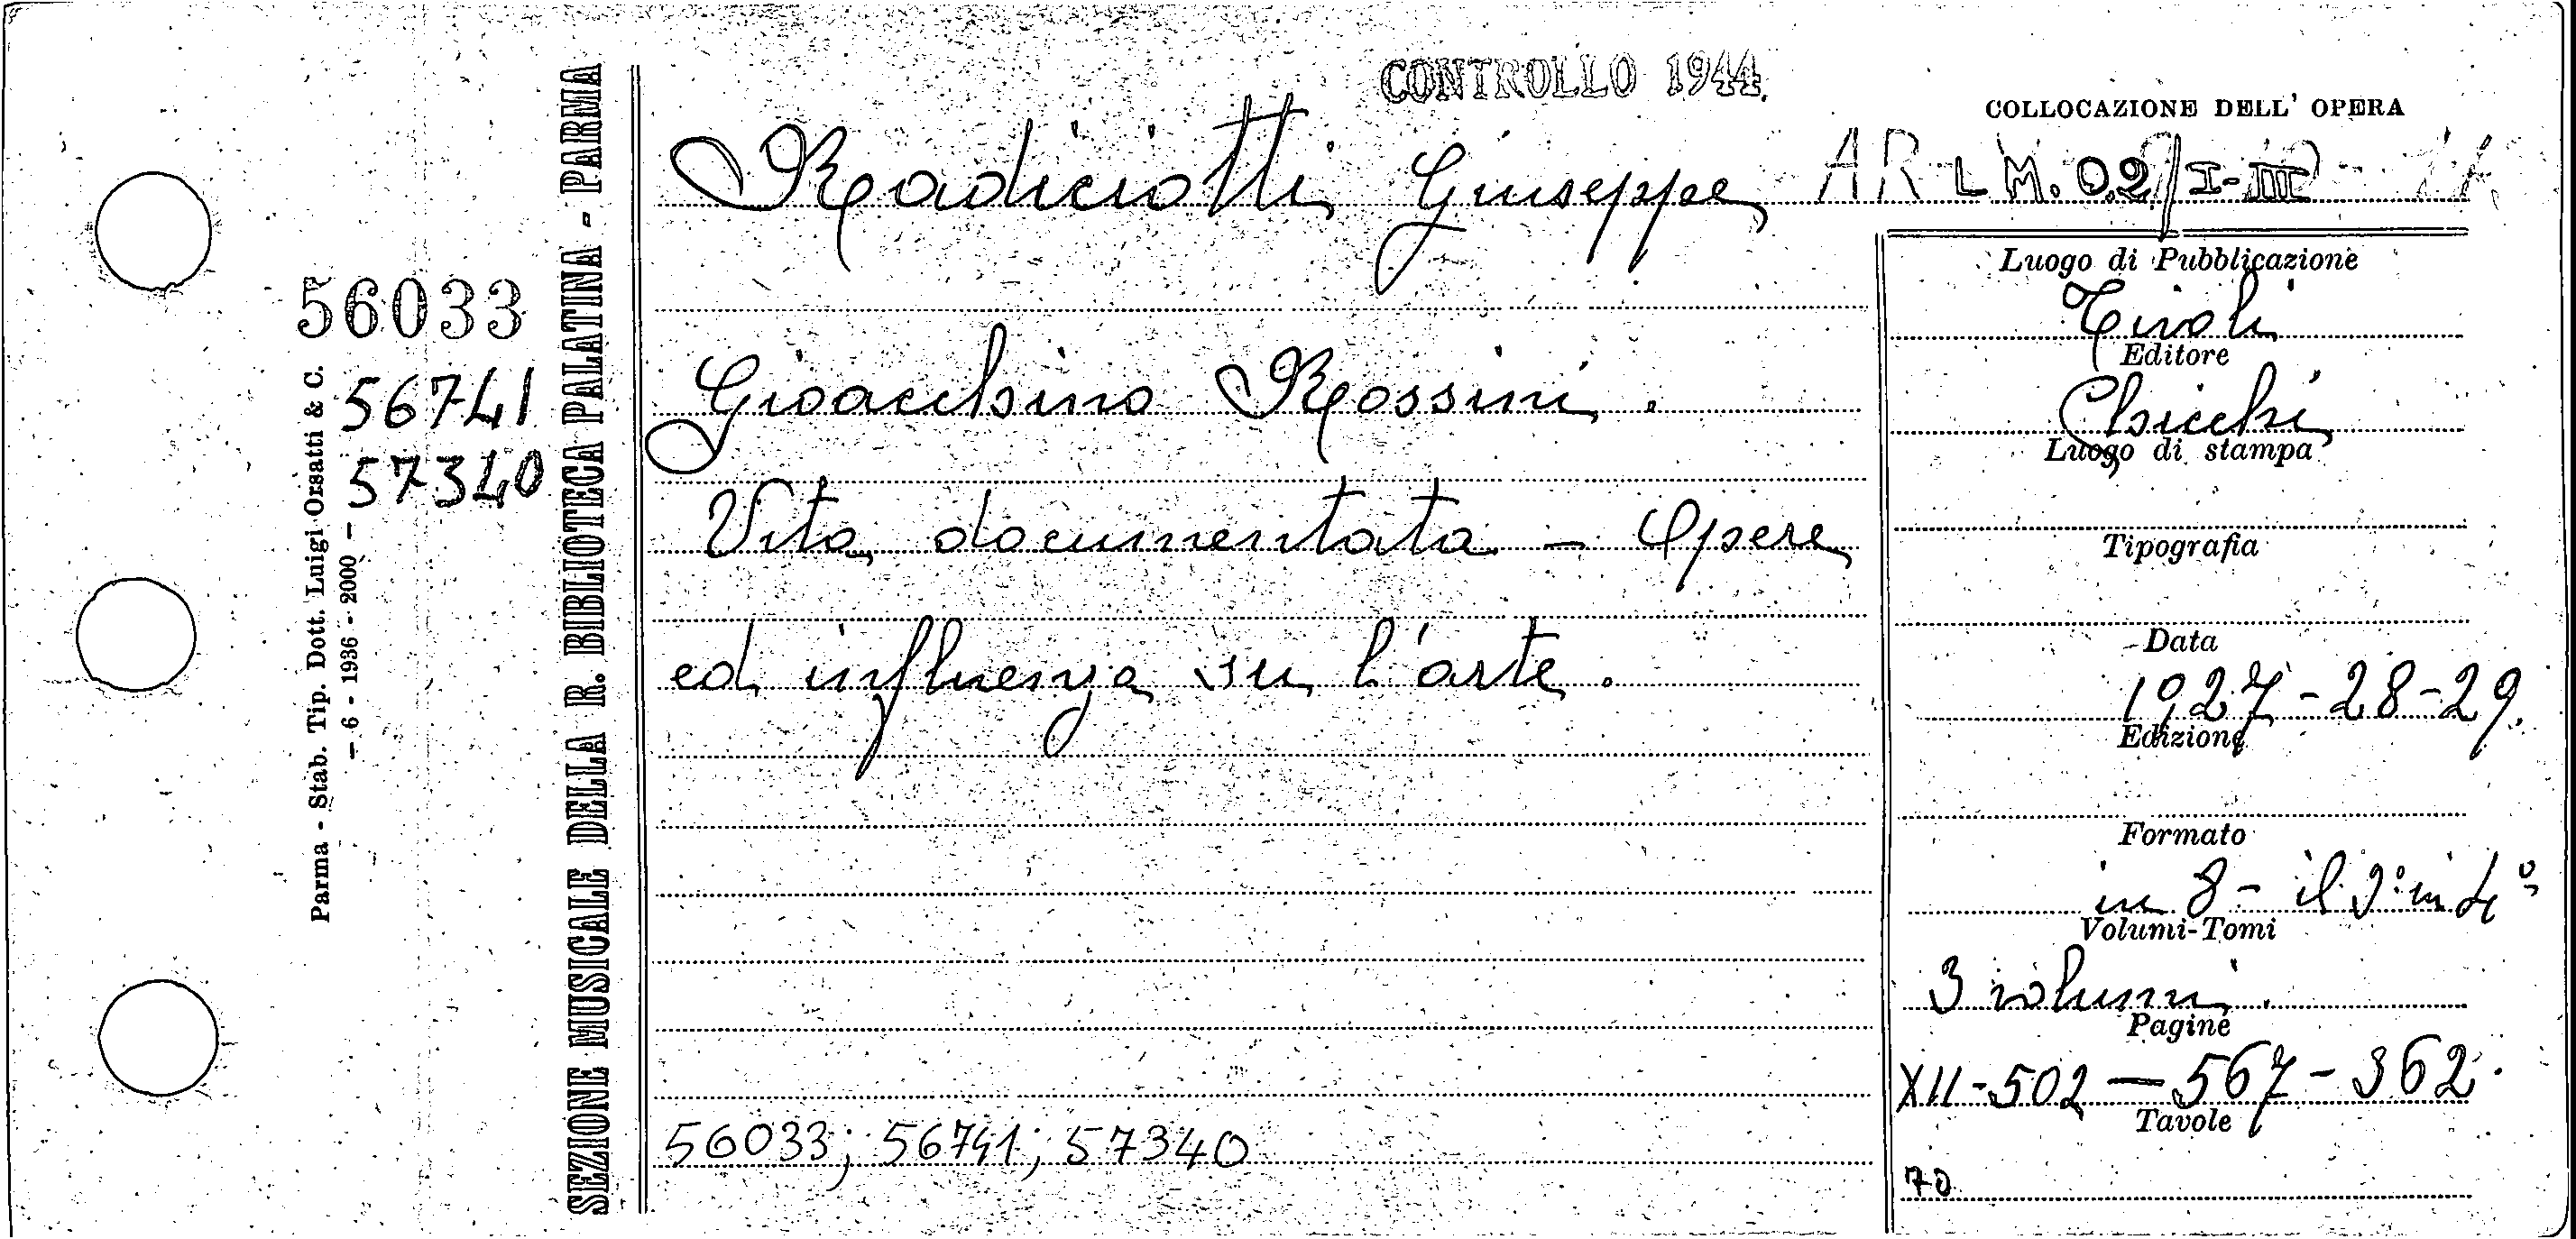 CONTROLLO 1944
COLLOCAZIONE DELL' OPERA
Radiciotti Giuseppe
AR L M. O.2/I-III
56033
56741
57340
Parma - Stab. Tip. Dott. Luigi Orsatti & C.
— 6 - 1936 - 2000 —
SEZIONE MUSICALE DELLA R. BIBLIOTECA PALATINA - PARMA
Gioacchino Rossini.
Vita documentata - Opere
ed influenza su l'arte.
56033; 56741; 57340
Luogo di Pubblicazione
Tivoli
Editore
Chicchi
Luogo di stampa
Tipografia
Data
1927-28-29.
Edizione
Formato
in 8 - il 3° in 4°
Volumi-Tomi
3 volumi.
Pagine
XII-502 — 567 - 362.
Tavole
70